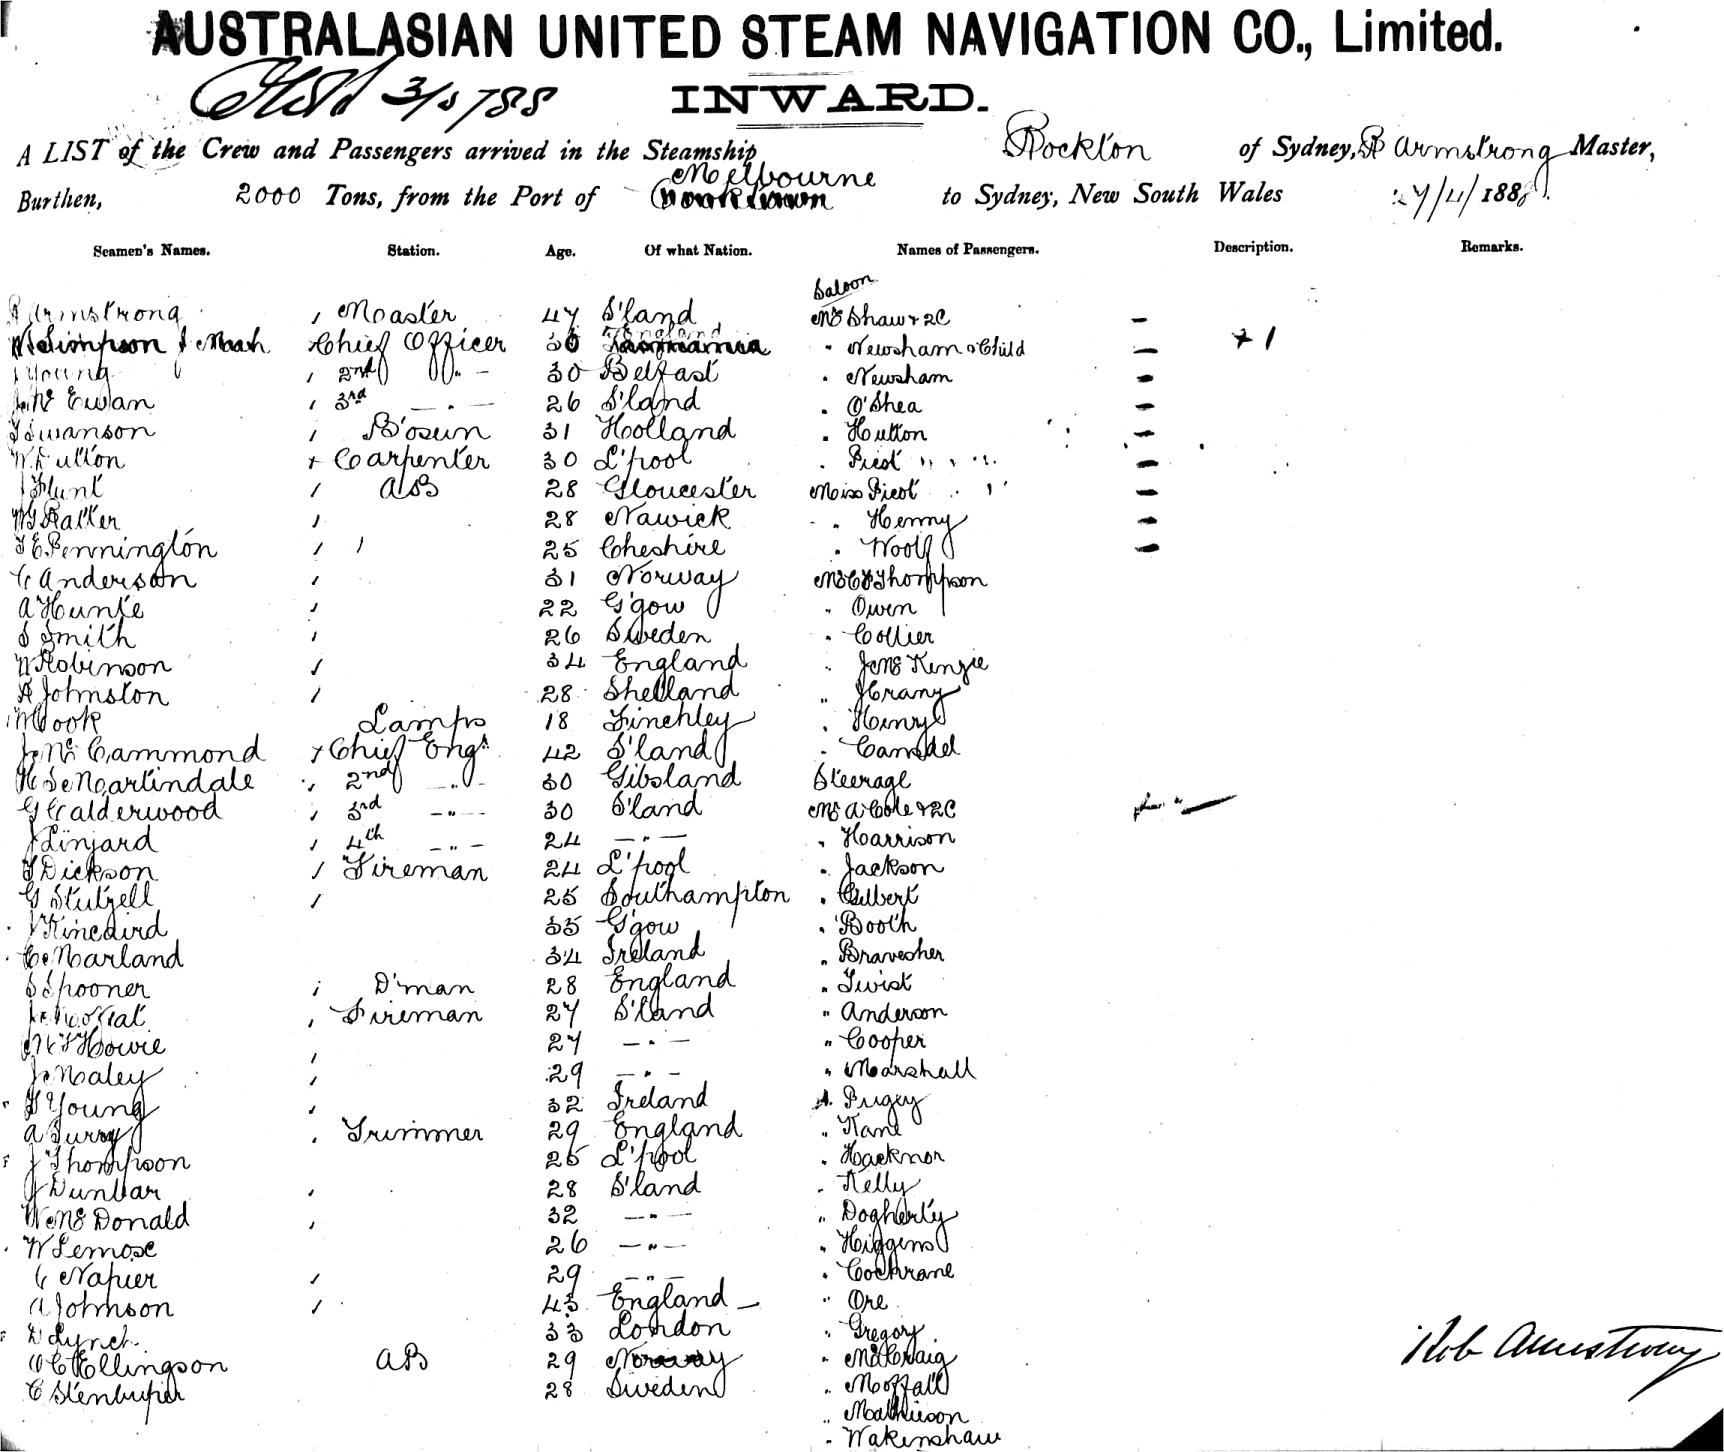 AUSTRALASIAN UNITED STEAM NAVIGATION CO., Limited.
3/5/88 INWARD.
A LIST of the Crew and Passengers arrived in the Steamship Rockton of Sydney, R Armstrong Master,
Melbourne
Burthen, 2000 Tons, from the Port of to Sydney, New South Wales 27/4/1888.
Seamen's Names. Station. Age. Of what Nation. Names of Passengers. Description. Remarks.
Saloon
R Armstrong Master 47 S'land Mrs Shaw & 2C —
England
Simpson J Mash Chief Officer 36 Tasmania " Newsham & Child — + 1
J Young 2nd " — 30 Belfast " Newsham —
J. Mc Ewan 3rd — " — 26 S'land " O'Shea —
J Swanson B'osun 31 Holland " Hutton —
W. Dutton + Carpenter 30 L'pool " Picot " " —
J Hunt AB 28 Gloucester Miss Picot " " —
28 Nawick " Henny —
T E Pennington 25 Cheshire " Woolf —
C Anderson 31 Norway Thompson
A Hunte 22 G'gow " Owen
S Smith 26 Sweden " Collier
W Robinson 34 England " J Mc Kenzie
A Johnston 28 Shetland "
W Cook Lamps 18 Finchley " Henry
J. Mc Cammond + Chief Engr 42 S'land "
H S Martindale 2nd — " — 30 Gibsland Steerage
G Calderwood 3rd — " — 30 S'land Mrs A Cole & 2C
J Linjard 4th — " — 24 — " — " Harrison
T Dickson Fireman 24 L'pool " Jackson
G Stutzell 25 Southampton " Gilbert
J Kincaird 33 G'gow " Booth
C Marland 34 Ireland " Bravesher
S Spooner D'man 28 England " Twist
J. Moffat Fireman 27 S'land " Anderson
Howie 27 — " — " Cooper
J. Maley 29 — " — " Marshall
T Young 32 Ireland " Pugey
A Turry Trimmer 29 England " Kane
J Thompson 25 L'pool " Hacknor
J Dunbar 28 S'land " Kelly
W Mc Donald 32 — " — " Dogherty
W Lemose 26 — " — " Higgens
C Napier 29 — " — " Cochrane
A Johnson 43 England — " Ore
D Lynch 33 London " Gregory
O C Ellingson AB 29 Norway " McCraig
C 28 Sweden " Moffatt
" Mathieson
" Wakenshaw
Rob Armstrong